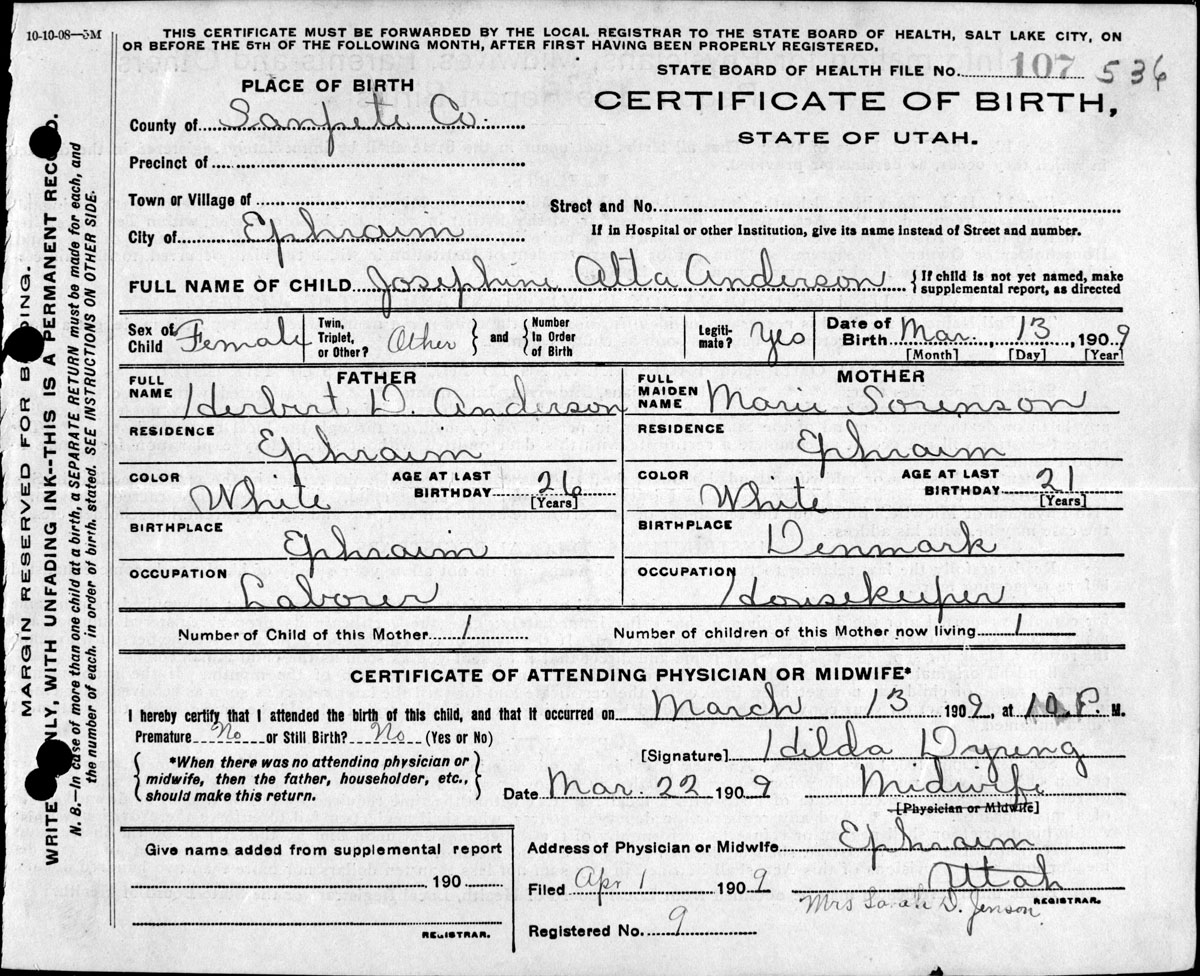 10-10-08—5M
THIS CERTIFICATE MUST BE FORWARDED BY THE LOCAL REGISTRAR TO THE STATE BOARD OF HEALTH, SALT LAKE CITY, ON
OR BEFORE THE 5TH OF THE FOLLOWING MONTH, AFTER FIRST HAVING BEEN PROPERLY REGISTERED.
STATE BOARD OF HEALTH FILE No. 107 536
PLACE OF BIRTH
CERTIFICATE OF BIRTH,
STATE OF UTAH.
County of Sanpete Co.
Precinct of
Town or Village of
Street and No.
City of Ephraim
If in Hospital or other Institution, give its name instead of Street and number.
FULL NAME OF CHILD Josephine Atta Anderson { If child is not yet named, make
supplemental report, as directed
Sex of Child Female
Twin, Triplet, or Other? Other } and { Number In Order of Birth
Legiti-mate? Yes
Date of Birth Mar. 13, 1909
[Month] [Day] [Year]
FATHER
FULL NAME Herbert D. Anderson
RESIDENCE Ephraim
COLOR White AGE AT LAST BIRTHDAY 26 [Years]
BIRTHPLACE Ephraim
OCCUPATION Laborer
MOTHER
FULL MAIDEN NAME Marie Sorenson
RESIDENCE Ephraim
COLOR White AGE AT LAST BIRTHDAY 21 [Years]
BIRTHPLACE Denmark
OCCUPATION Housekeeper
Number of Child of this Mother 1 Number of children of this Mother now living 1
CERTIFICATE OF ATTENDING PHYSICIAN OR MIDWIFE*
I hereby certify that I attended the birth of this child, and that it occurred on March 13 1909, at 10 P. M.
Premature No or Still Birth? No (Yes or No)
[Signature] Hilda Dyreng
{ *When there was no attending physician or
midwife, then the father, householder, etc.,
should make this return. }
Date Mar. 22 1909 Midwife
[Physician or Midwife]
Address of Physician or Midwife Ephraim
Utah
Give name added from supplemental report
190
REGISTRAR.
Filed Apr 1 1909 Mrs Sarah D. Jenson
REGISTRAR.
Registered No. 9
MARGIN RESERVED FOR DING.
WRITE NLY, WITH UNFADING INK--THIS IS A PERMANENT REC D.
N. B.—In case of more than one child at a birth, a SEPARATE RETURN must be made for each, and
the number of each, in order of birth, stated. SEE INSTRUCTIONS ON OTHER SIDE.